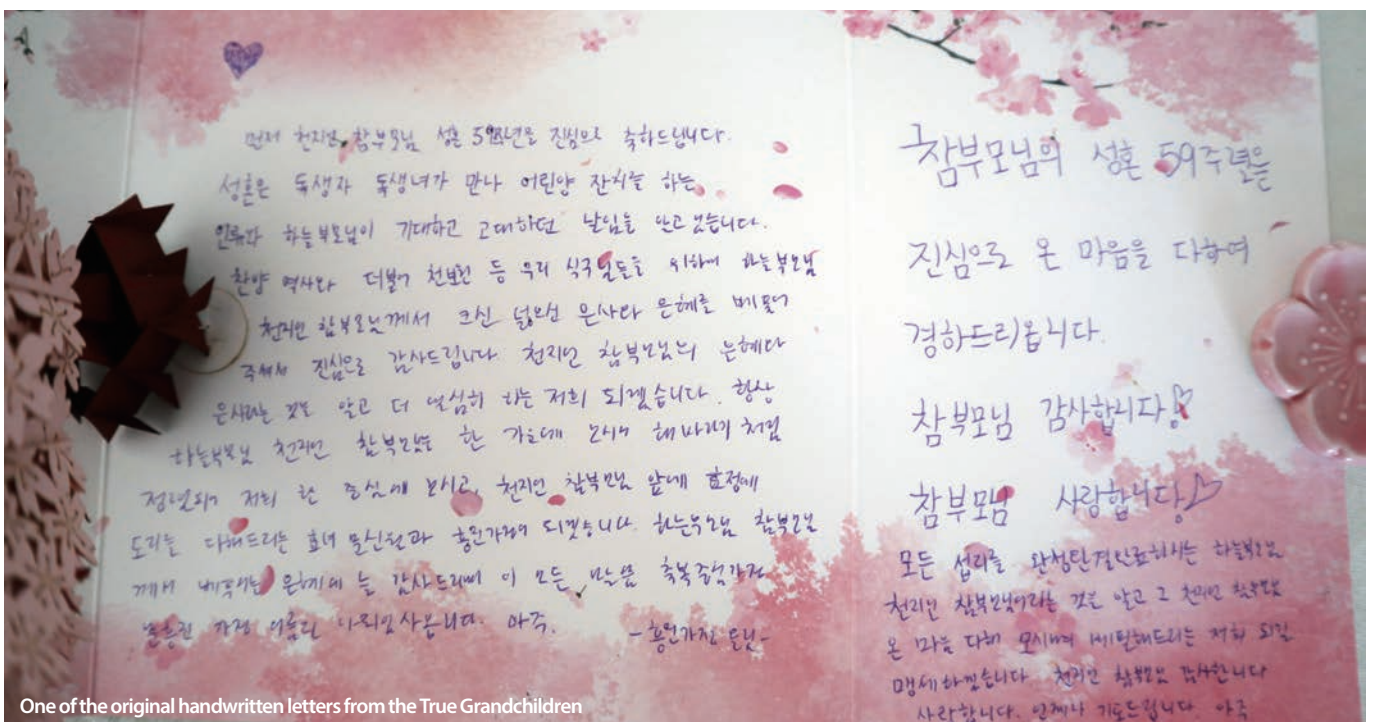 먼저 천지인 참부모님 성혼 59주년을 진심으로 축하드립니다.
성혼은 독생자 독생녀가 만나 어린양 잔치를 하는
인류와 하늘부모님이 기대하고 고대하던 날임을 알고 있습니다.
찬양 역사와 더불어 천보원 등 우리 식구님들을 위하여 하늘부모님
천지인 참부모님께서 크신 넓으신 은사와 은혜를 베풀어
주셔서 진심으로 감사드립니다 천지인 참부모님의 은혜다
은사라는 것을 알고 더 열심히 하는 저희 되겠습니다. 항상
하늘부모님 천지인 참부모님을 한 가운데 모시어 해바라기처럼
정렬되어 저희 한 중심에 모시고, 천지인 참부모님 앞에 효정에
도리를 다해드리는 효녀 문신원과 흥민가정이 되겠습니다. 하늘부모님 참부모님
께서 은혜에 늘 감사드리며 이 모든 말씀 축복중심가정
가정 이름으로 아뢰었사옵니다. 아주.
참부모님의 성혼 59주년을
진심으로 온 마음을 다하여
경하드리옵니다.
참부모님 감사합니다!
참부모님 사랑합니다
모든 섭리를 완성완결완료하시는 하늘부모님
천지인 참부모님이라는 것을 알고 그 천지인 참부모님
온 마음 다해 모시며 저희 되길
맹세하겠습니다 천지인 참부모님 감사합니다
사랑합니다. 언제나 기도드립니다 아주
One of the original handwritten letters from the True Grandchildren